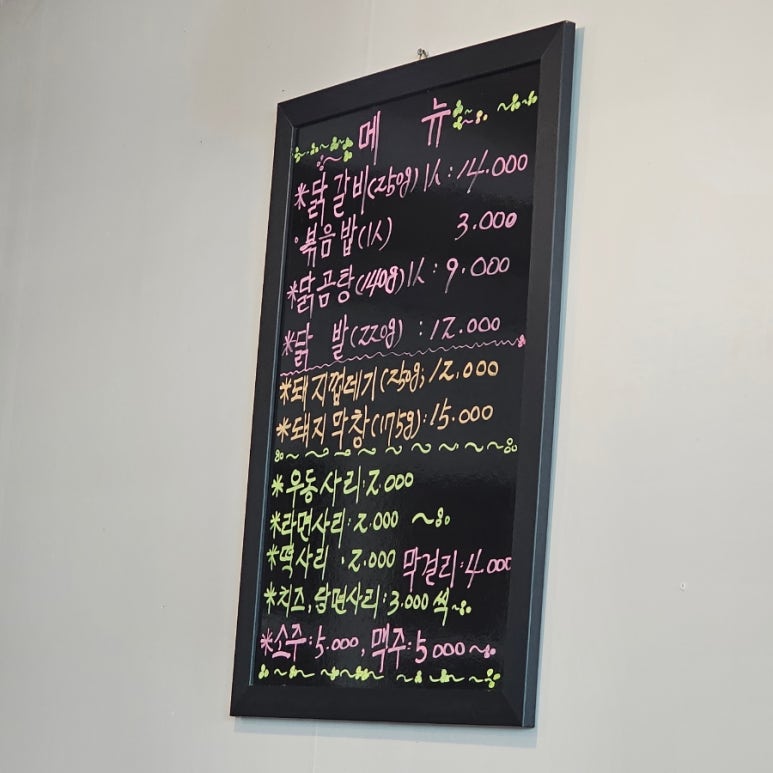 메 뉴
*닭갈비(250g)1人:14.000
·볶음밥(1人) 3.000
*닭곰탕(140g)1人:9.000
*닭 발(220g) :12.000
*돼지껍데기(250g; 12.000
*돼지막창(175g):15.000
*우동사리:2.000
*라면사리:2.000
*떡사리 ·2.000 막걸리:4.000
*치즈,당면사리:3.000씩
*소주:5.000, 맥주:5000